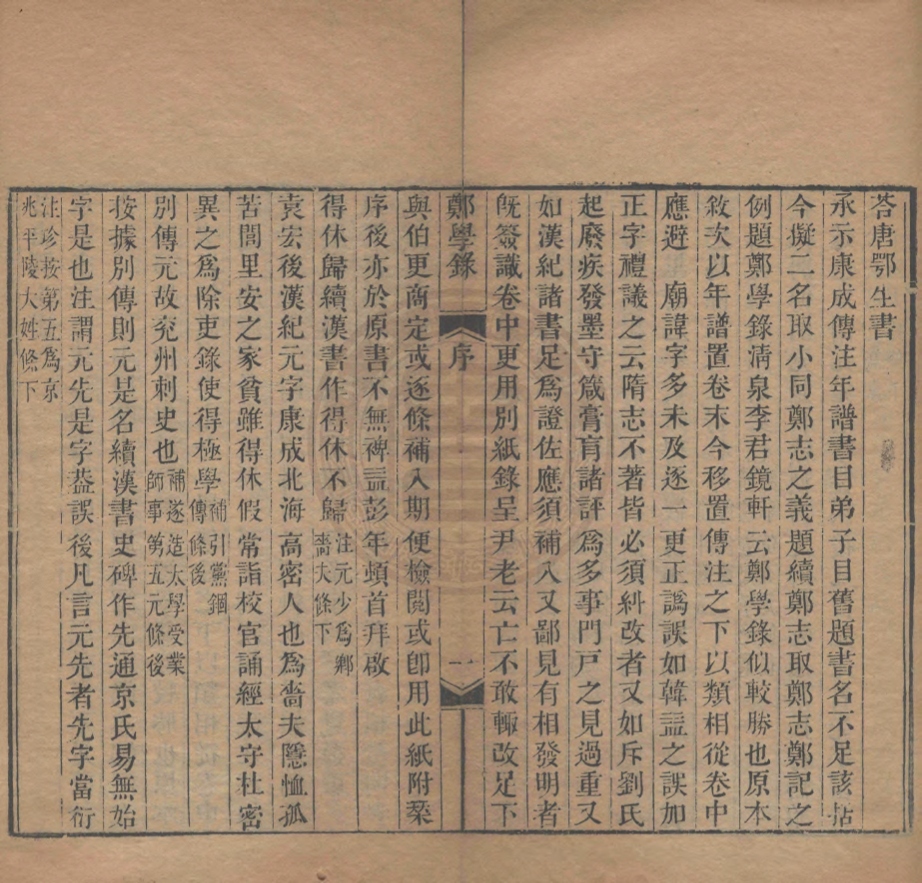 荅唐鄂生書
承示康成傳注年譜書目弟子目舊題書名不足該括
今擬二名取小同鄭志之義題續鄭志取鄭志鄭記之
例題鄭學錄淸泉李君鏡軒云鄭學錄似較勝也原本
敘次以年譜置卷末今移置傳注之下以類相從卷中
應避 廟諱字多未及逐一更正譌誤如韓詣之誤加
正字禮議之云隋志不著皆必須糾改者又如斥劉氏
起廢疾發墨守箴膏肓諸評爲多事門戸之見過重又
如漢紀諸書足爲證佐應須補入又鄙見有相發明者
旣簽識卷中更用別紙錄呈尹老云亡不敢輒改足下
鄭學錄 序 一
與伯更商定或逐條補入期便檢閱或卽用此紙附栞
序後亦於原書不無裨益彭年頓首拜啟
得休歸續漢書作得休不歸注元少爲鄕嗇夫條下
袁宏後漢紀元字康成北海高密人也爲嗇夫隱恤孤
苦閭里安之家貧雖得休假常詣校官誦經太守杜密
異之爲除吏錄使得極學補引黨錮傳條後
別傳元故兖州刺史也補遂造太學受業師事第五元條後
按據別傳則元是名續漢書史碑作先通京氏易無始
字是也注謂元先是字葢誤後凡言元先者先字當衍
注珍按第五爲京兆平陵大姓條下